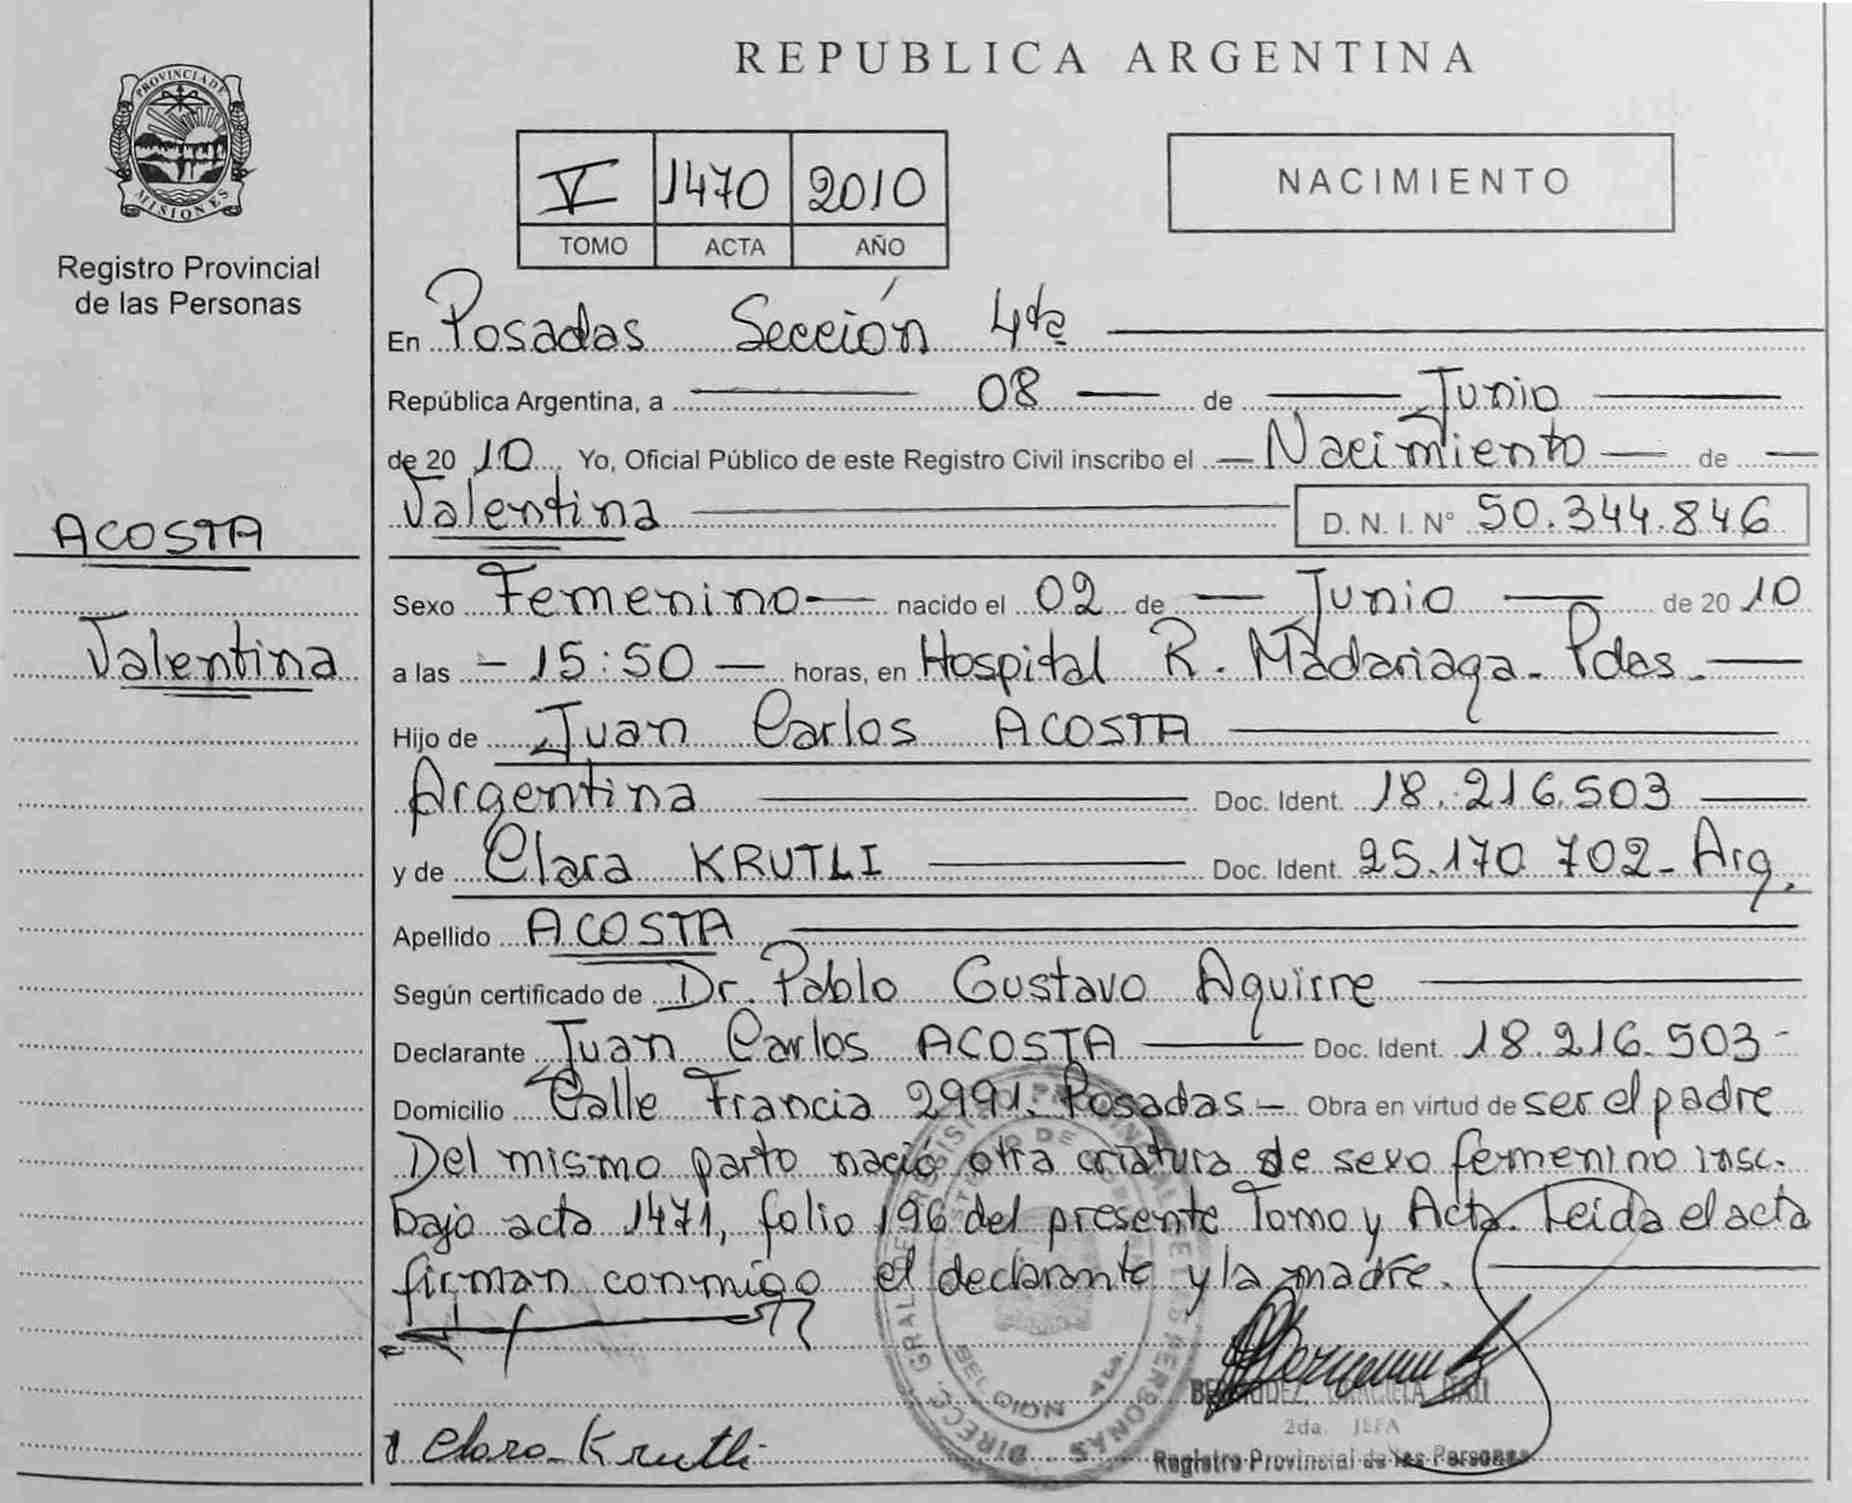 REPUBLICA ARGENTINA
PROVINCIA DE
MISIONES
Registro Provincial
de las Personas
V 1470 2010
TOMO ACTA AÑO
NACIMIENTO
ACOSTA
Valentina
En Posadas Sección 4ta
República Argentina, a 08 de Junio
de 20 10 Yo, Oficial Público de este Registro Civil inscribo el Nacimiento de
Valentina D. N. I. N° 50.344.846
Sexo Femenino nacido el 02 de Junio de 20 10
a las - 15:50 - horas, en Hospital R. Madariaga - Pdas.
Hijo de Juan Carlos ACOSTA
Argentina Doc. Ident. 18.216.503
y de Clara KRUTLI Doc. Ident. 25.170.702 - Arg.
Apellido ACOSTA
Según certificado de Dr. Pablo Gustavo Aguirre
Declarante Juan Carlos ACOSTA Doc. Ident. 18.216.503-
Domicilio Calle Francia 2991. Posadas - Obra en virtud de ser el padre
Del mismo parto nació otra criatura de sexo femenino insc.
bajo acta 1471, folio 196 del presente Tomo y Acta. Leída el acta
firman conmigo el declarante y la madre.
Clara Krutli
2da. JEFA
Registro Provincial de las Personas